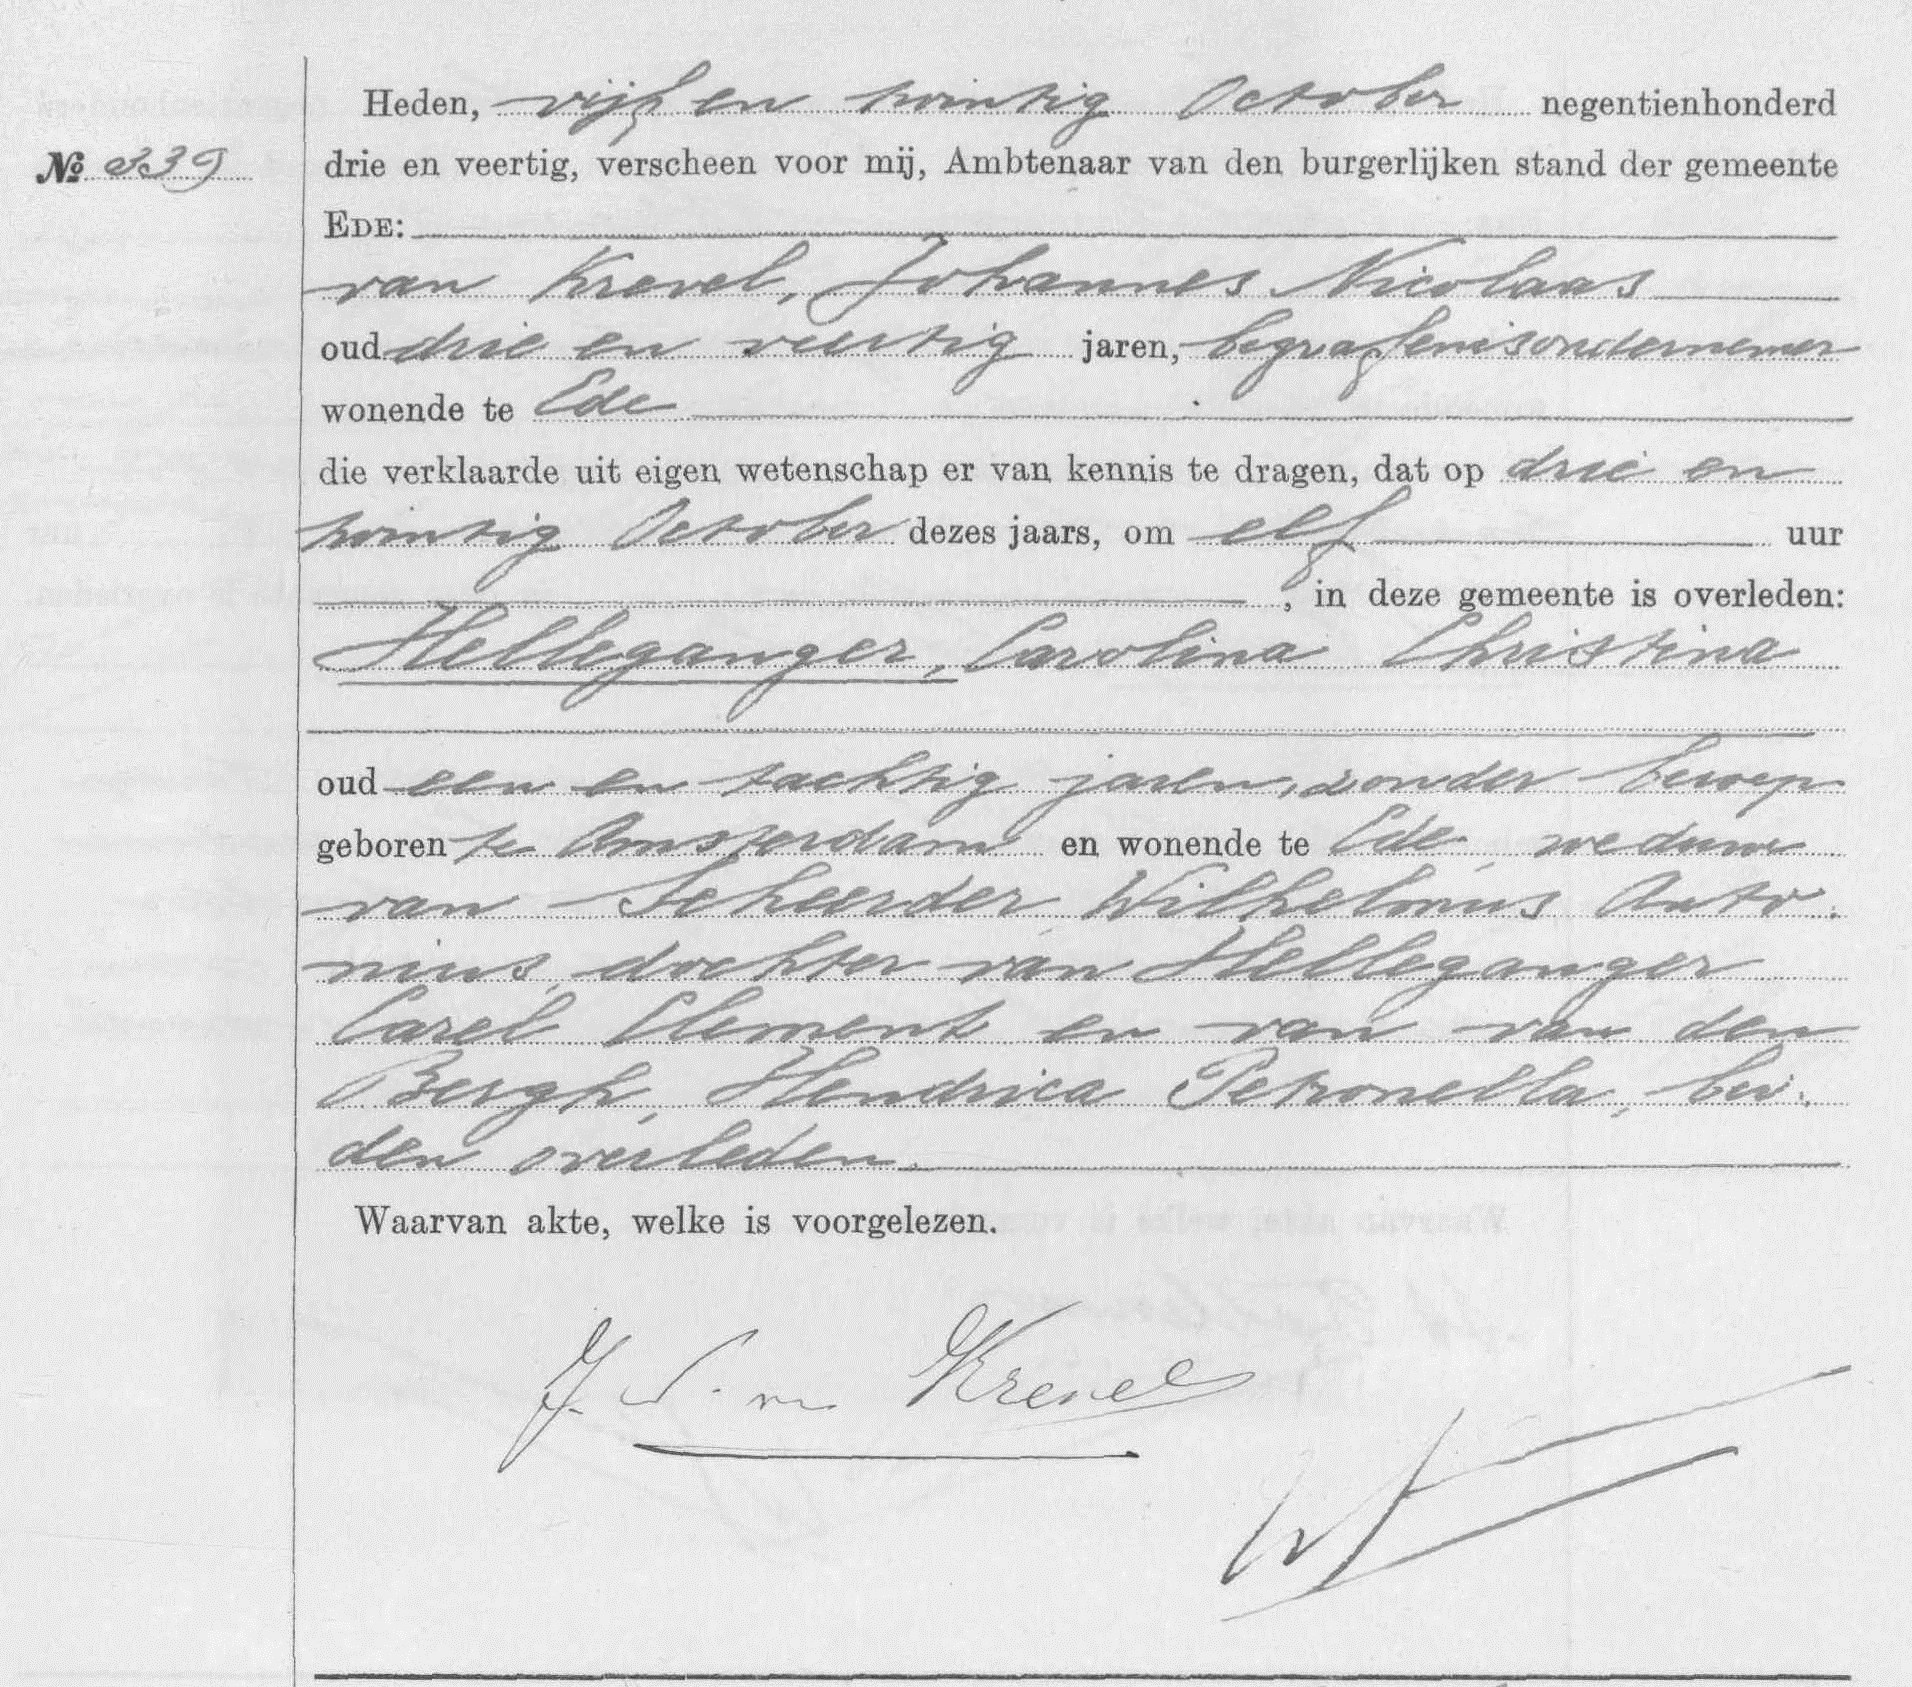 Heden, vijf en twintig October negentienhonderd
No 339
drie en veertig, verscheen voor mij, Ambtenaar van den burgerlijken stand der gemeente
EDE:
van Krevel, Johannes Nicolaas
oud drie en veertig jaren, begrafenisondernemer
wonende te Ede
die verklaarde uit eigen wetenschap er van kennis te dragen, dat op drie en
twintig October dezes jaars, om elf uur
, in deze gemeente is overleden:
Helleganger, Carolina Christina
oud een en tachtig jaren, zonder beroep
geboren te Amsterdam en wonende te Ede, weduwe
van Scheerder, Wilhelmus Anto-
nius, dochter van Helleganger
Carel Clement en van van den
Bergh, Hendrica Petronella, bei-
den overleden.
Waarvan akte, welke is voorgelezen.
J. N. van Krevel